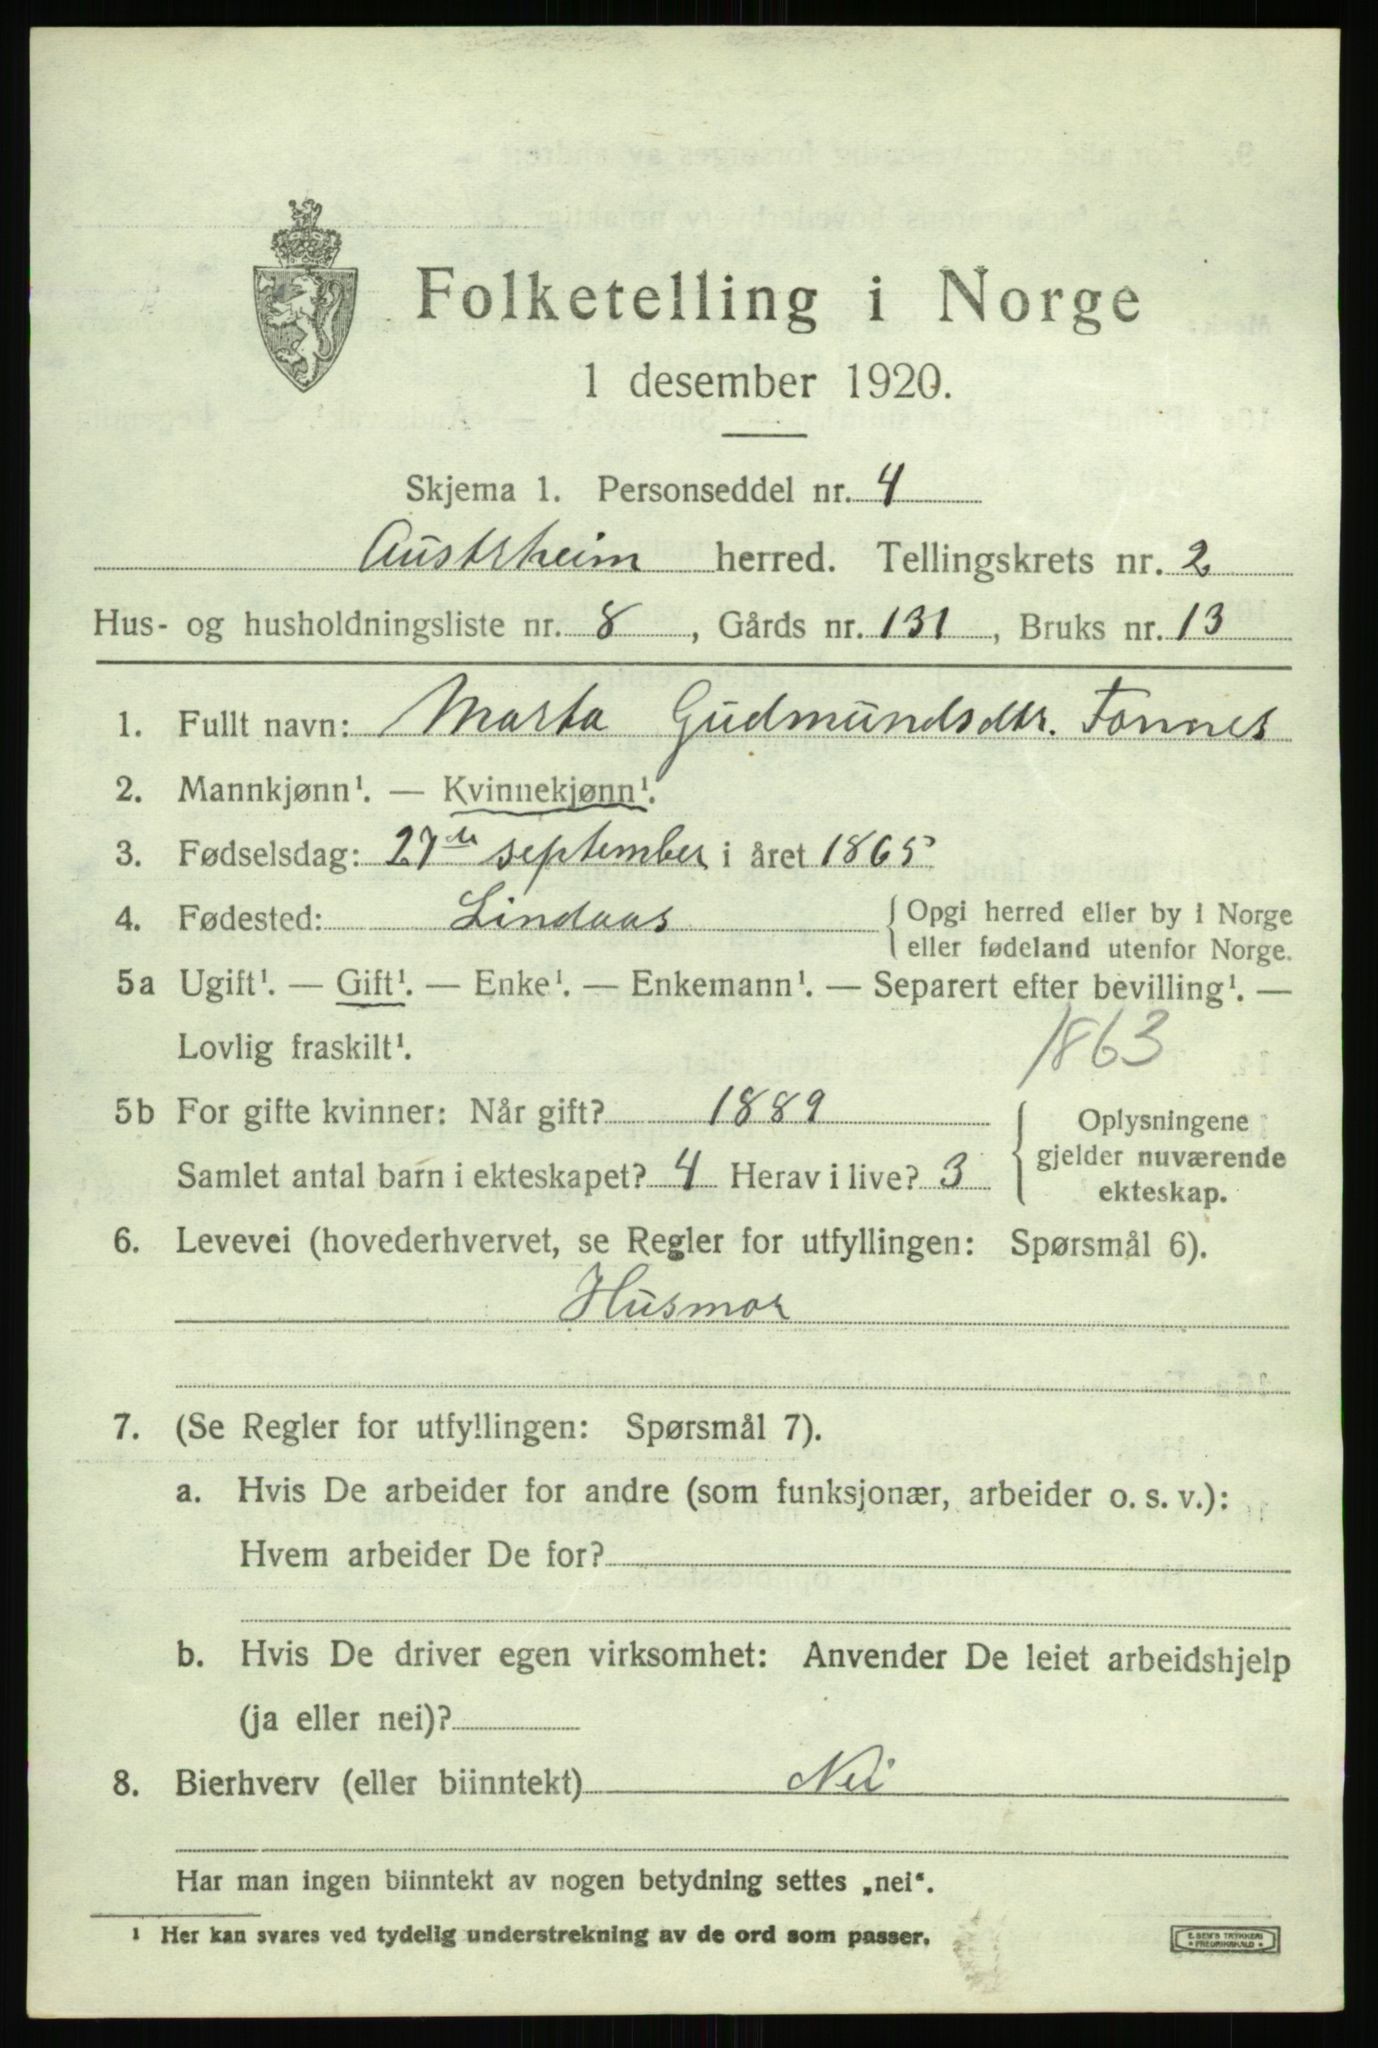 Folketelling i Norge
1 desember 1920.
Skjema 1. Personseddel nr. 4
Austrheim herred. Tellingskrets nr. 2
Hus- og husholdningsliste nr. 8, Gårds nr. 131, Bruks nr. 13
1. Fullt navn: Marta Gudmundsdtr. Fonnes
2. Mannkjønn¹. — Kvinnekjønn¹.
3. Fødselsdag: 27de september i året 1865
4. Fødested: Lindaas { Opgi herred eller by i Norge
eller fødeland utenfor Norge.
5a Ugift¹. — Gift¹. — Enke¹. — Enkemann¹. — Separert efter bevilling¹. —
Lovlig fraskilt¹.
1863
5b For gifte kvinner: Når gift? 1889
Samlet antal barn i ekteskapet? 4 Herav i live? 3
{ Oplysningene
gjelder nuværende
ekteskap.
6. Levevei (hovederhvervet, se Regler for utfyllingen: Spørsmål 6).
Husmor
7. (Se Regler for utfyllingen: Spørsmål 7).
a. Hvis De arbeider for andre (som funksjonær, arbeider o. s. v.):
Hvem arbeider De for?
b. Hvis De driver egen virksomhet: Anvender De leiet arbeidshjelp
(ja eller nei)?
8. Bierhverv (eller biinntekt) Nei
Har man ingen biinntekt av nogen betydning settes „nei“.
¹ Her kan svares ved tydelig understrekning av de ord som passer.
E. SEM'S TRYKKERI
FREDRIKSHALD